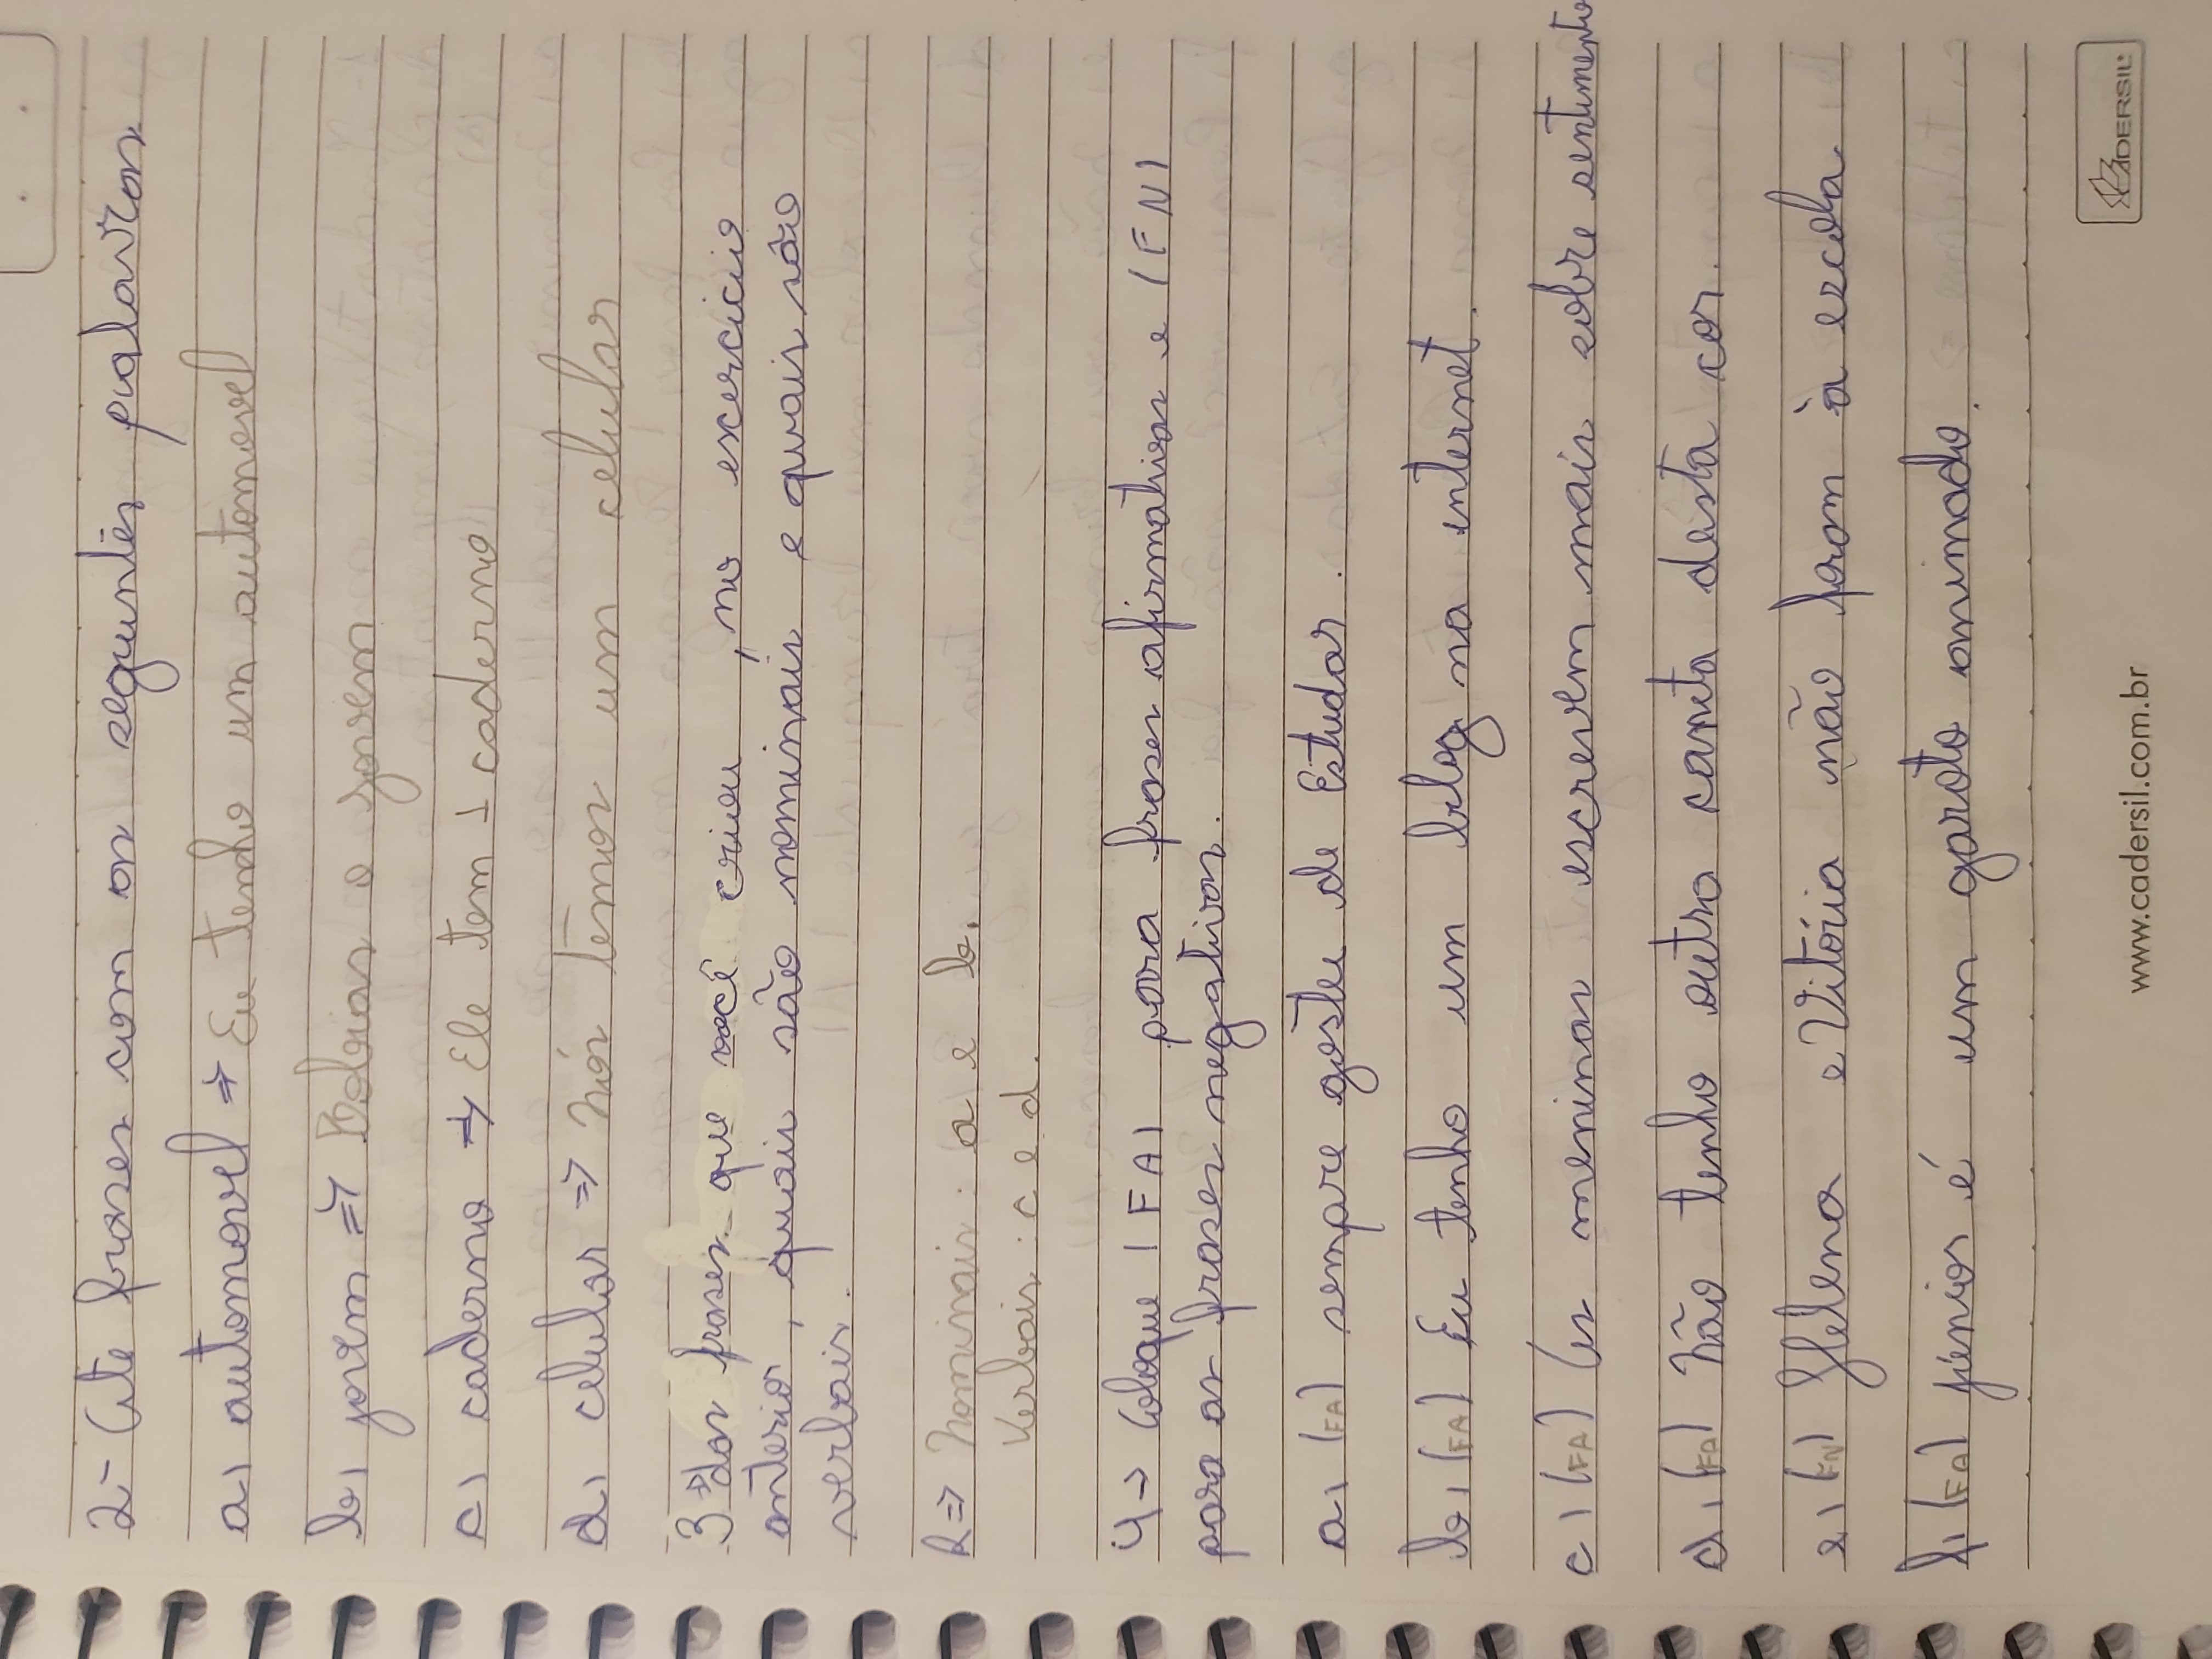 2- Cite frases com as seguintes palavras
a) automovel => Eu tenho um automovel
b) jovem => Bolsias o jovem
c) caderno => Ele tem 1 caderno
d) celular => Nós temos um celular
3 => das frases que você criou, no exercício
anterior, quais são nominais e quais são
verbais.
R => Nominais: a e b.
Verbais: c e d.
4 -> Coloque (FA) para frases afirmativas e (FN)
para as frases negativas.
a) (FA) sempre gostei de Estudar.
b) (FA) Eu tenho um blog na internet.
c) (FA) Os meninos escrevem mais sobre sentimento
d) (FA) Não tenho outra caneta desta cor.
e) (FN) Helena e Vitória não foram à escola.
f) (FA) júnior é um garoto animado.
www.cadersil.com.br
CADERSIL